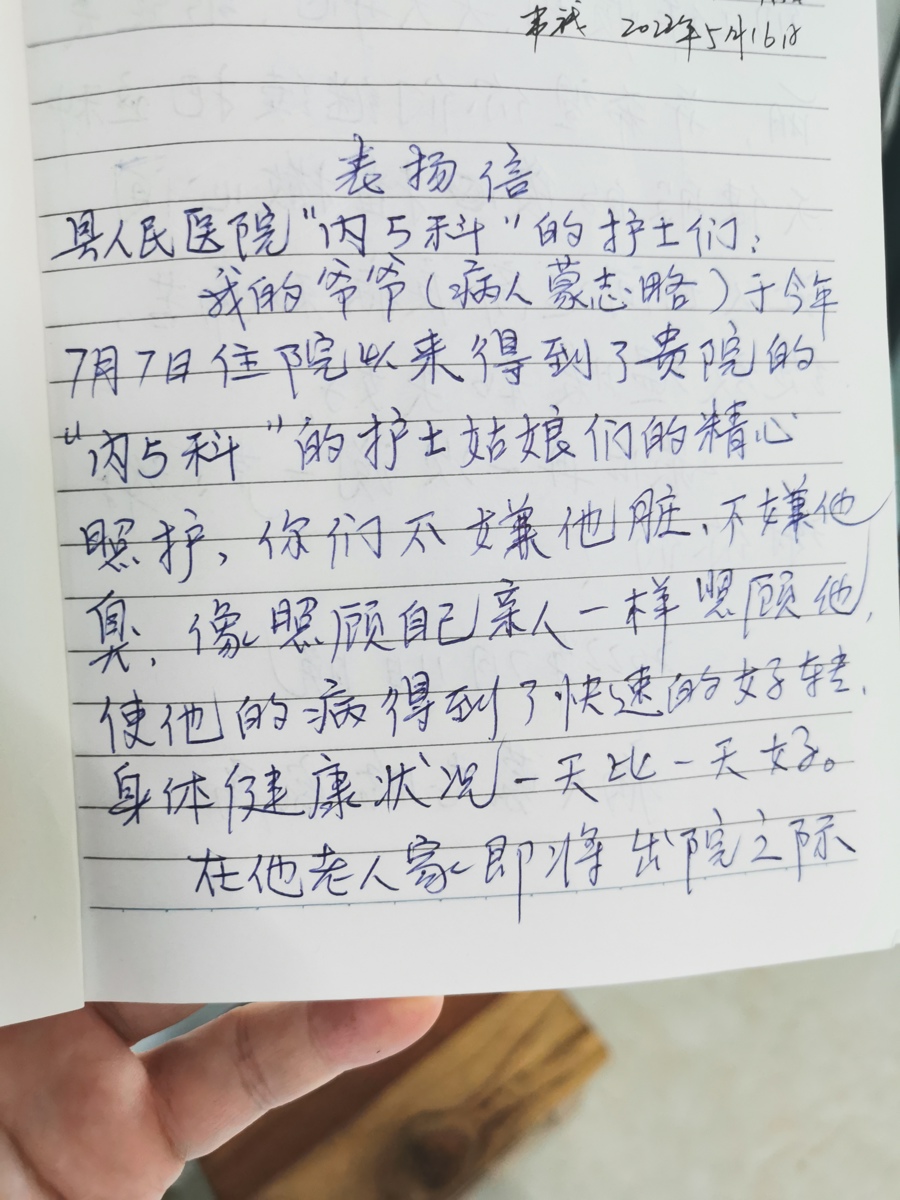 2022年5月16日
表扬信
县人民医院“内5科”的护士们：
我的爷爷（病人蒙志略）于今年
7月7日住院以来得到了贵院的
“内5科”的护士姑娘们的精心
照护，你们不嫌他脏、不嫌他
臭，像照顾自己亲人一样照顾他，
使他的病得到了快速的好转，
身体健康状况一天比一天好。
在他老人家即将出院之际